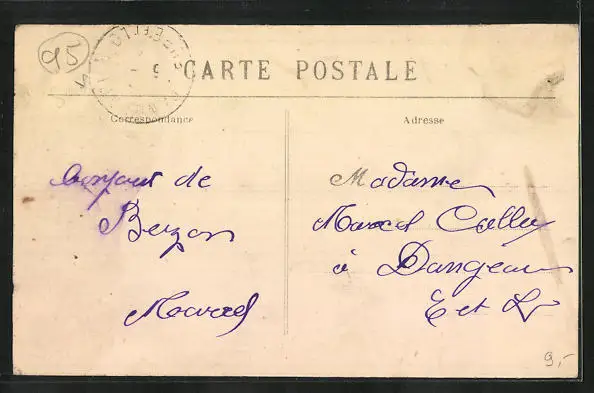 95
CARTE POSTALE
Correspondance
Adresse
bonjour de
Buzon
Marcel
Madame
Marcel Calley
à Dangeau
E et L
9,-